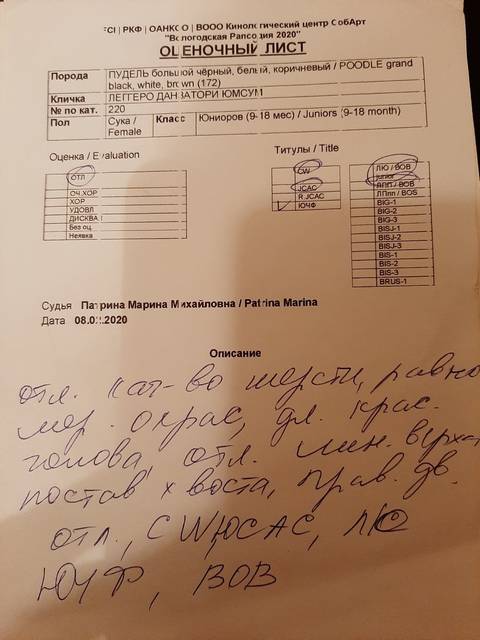 FCI | РКФ | ОАНКОО | ВООО Кинологический центр СобАрт
"Вологодская Рапсодия 2020"
ОЦЕНОЧНЫЙ ЛИСТ
Порода ПУДЕЛЬ большой чёрный, белый, коричневый / POODLE grand
black, white, brown (172)
Кличка ЛЕГГЕРО ДАНЗАТОРИ ЮМСУМ
№ по кат. 220
Пол Сука / Female Класс Юниоров (9-18 мес) / Juniors (9-18 month)
Оценка / Evaluation
ОТЛ
ОЧ.ХОР
ХОР
УДОВЛ
ДИСКВАЛ
Без оц.
Неявка
Титулы / Title
CW
JCAC
R.JCAC
ЮЧФ
ЛЮ / BOB
junior
ЛПП / BOB
ЛПпп / BOS
BIG-1
BIG-2
BIG-3
BISJ-1
BISJ-2
BISJ-3
BIS-1
BIS-2
BIS-3
BRUS-1
Судья Патрина Марина Михайловна / Patrina Marina
Дата 08.02.2020
Описание
отл. кач-во шерсти, равно
мер. окрас, дл. крас.
голова, отл. лин. верха,
постав хвоста, прав. дв.
отл., CW, ЮСАС, ЛЮ
ЮЧФ, BOB